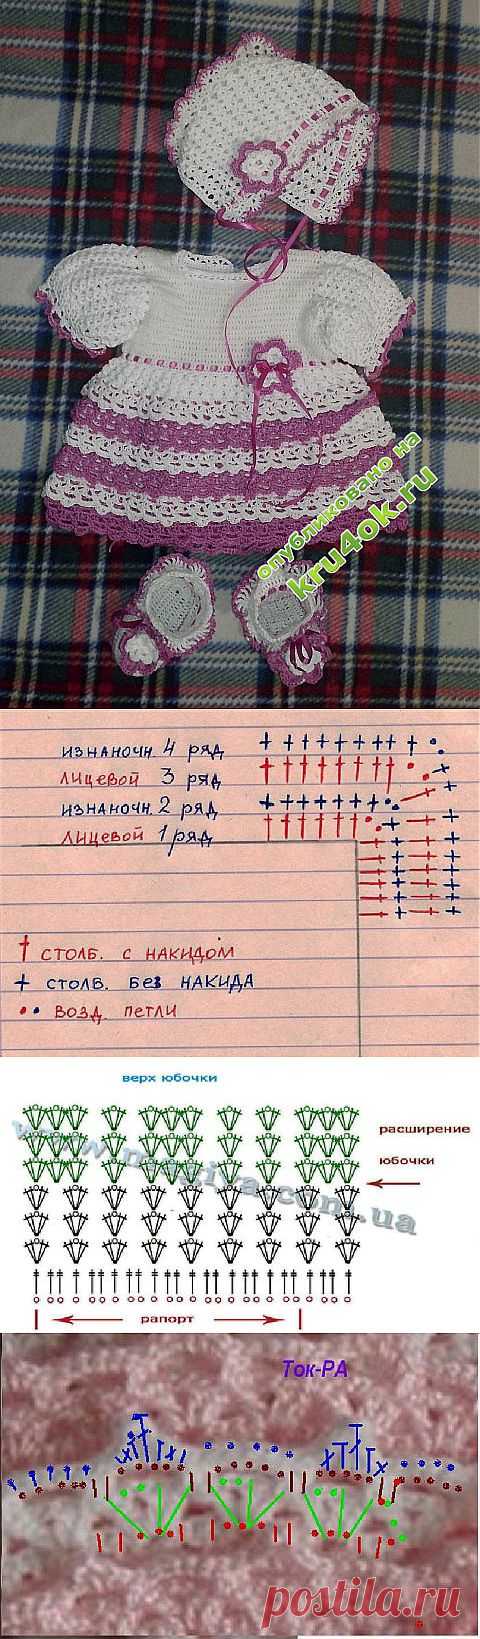 опубликовано на
kru4ok.ru
изнаночн. 4 ряд
лицевой 3 ряд
изнаночн. 2 ряд
лицевой 1 ряд
столб. с накидом
столб. без накида
возд. петли
верх юбочки
расширение
юбочки
рапорт
Ток-РА
postila.ru